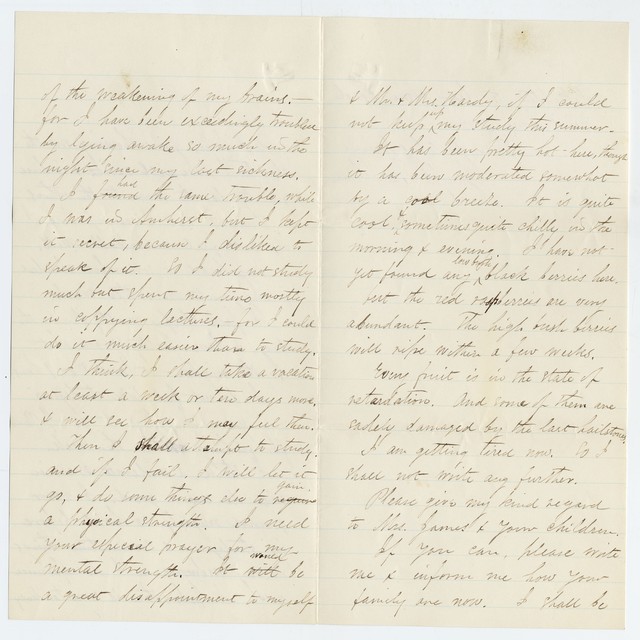 of the weakening of my brains. —
for I have been exceedingly troubled
by lying awake so much in the
night since my last sickness.
I found had the same trouble, while
I was in Amherst, but I kept
it secret, because I disliked to
speak of it. So I did not study
much but spent my time mostly
in coppying lectures. for I could
do it much easier than to study.
I think, I shall take a vacation
at least a week or ten days more,
& will see how I may feel then.
Then I shall attempt to study.
and if I fail, I will let it
go, & do some things else to require gain
a physical strength. I need
your especial prayer for my
mental strength. It will would be
a great disappointment to myself
& Mr. & Mrs. Hardy, if I could
not keep up my study this summer.
It has been pretty hot here, though
it has been moderated somewhat
by a cool breeze. It is quite
cool, sometimes quite chilly in the
morning & evening. I have not
yet found any low bush black berries here,
but the red raspberries are very
abundant. The high bush berries
will ripe within a few weeks.
Every fruit is in the state of
retardation. And some of them are
sadely damaged by the last hailstones.
I am getting tired now. So I
shall not write any further.
Please give my kind regard
to Mrs. James & your children.
If you can, please write
me & inform me how your
family are now. I shall be